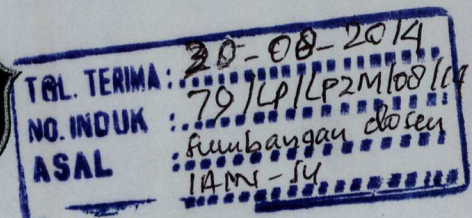 TGL. TERIMA : 20-08-2014
NO. INDUK : 79/LP/LP2M/08/14
ASAL : Sumbangan dosen
IAIN-SU